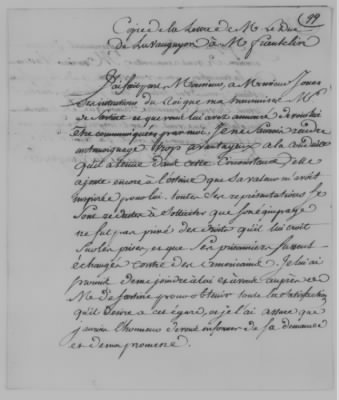 99
Copie de la Lettre de Mr. le Duc
de Lavauguyon à Mr. franklin
J'ai fait part Monsieur, à Monsieur Jones
des intentions du Roi que m'a transmises Mr.
de Sartine et que vous lui avés annoncé devoir lui
être communiquées par moi. Je ne saurois rendre
un temoignage trop avantageux a la conduite
qu'il a tenue dans cette Circonstance, Elle
ajoute encore à l'estime que sa valeur m'avoit
inspirée pour lui. toutes ses représentations se
sont réduites à Solliciter que son équipage
ne fut pas privé des droits qu'il lui croit
sur les prises, et que ses prisonniers fussent
échangés contre des américains. Je lui ai
promis de me joindre à lui et à vous auprès de
Mr. de Sartine pour obtenir toute la Satisfaction
qu'il desire a cet égard, et je l'ai assuré que
j'aurois l'honneur de vous informer de sa demande
et de ma promesse.